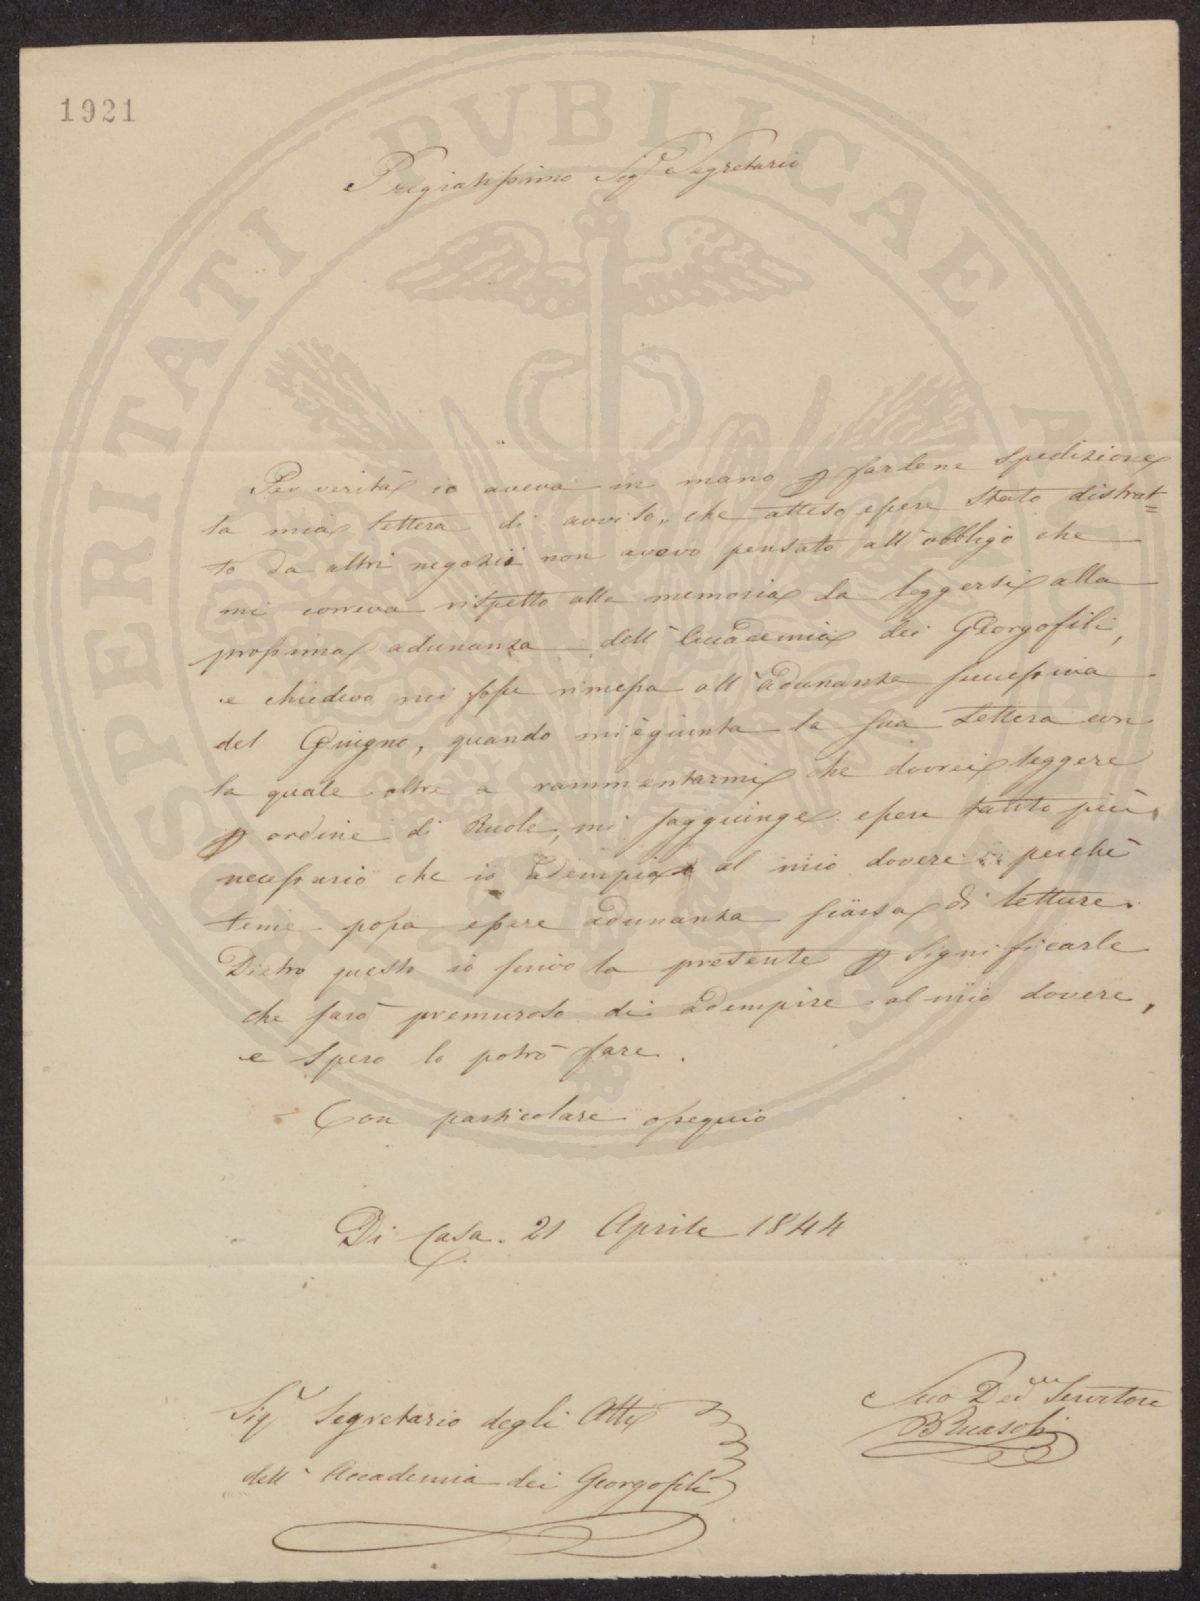 1921
PROSPERITATI PVBLICAE AVGENDAE
Pregiatissimo Sigr Segretario
Per verità io aveva in mano p farlene spedizione
la mia lettera di avviso, che atteso essere stato distrat=
to da altri negozii non avevo pensato all'obbligo che
mi correva rispetto alla memoria da leggersi alla
prossima adunanza dell'Accademia dei Georgofili,
e chiedevo mi fosse rimessa all'adunanza successiva
del Giugno, quando mi è giunta la sua Lettera con
la quale oltre a rammentarmi che dovrei leggere
p ordine di Ruolo, mi soggiunge essere tanto più
necessario che io adempia al mio dovere perché
teme possa essere adunanza scarsa di letture.
Dietro questo io scrivo la presente p significarle
che sarò premuroso di adempire al mio dovere,
e spero lo potrò fare.
Con particolare ossequio
Di Casa. 21 Aprile 1844
Suo Devmo Servitore
BRicasoli
Sigr Segretario degli Atti
dell'Accademia dei Georgofili